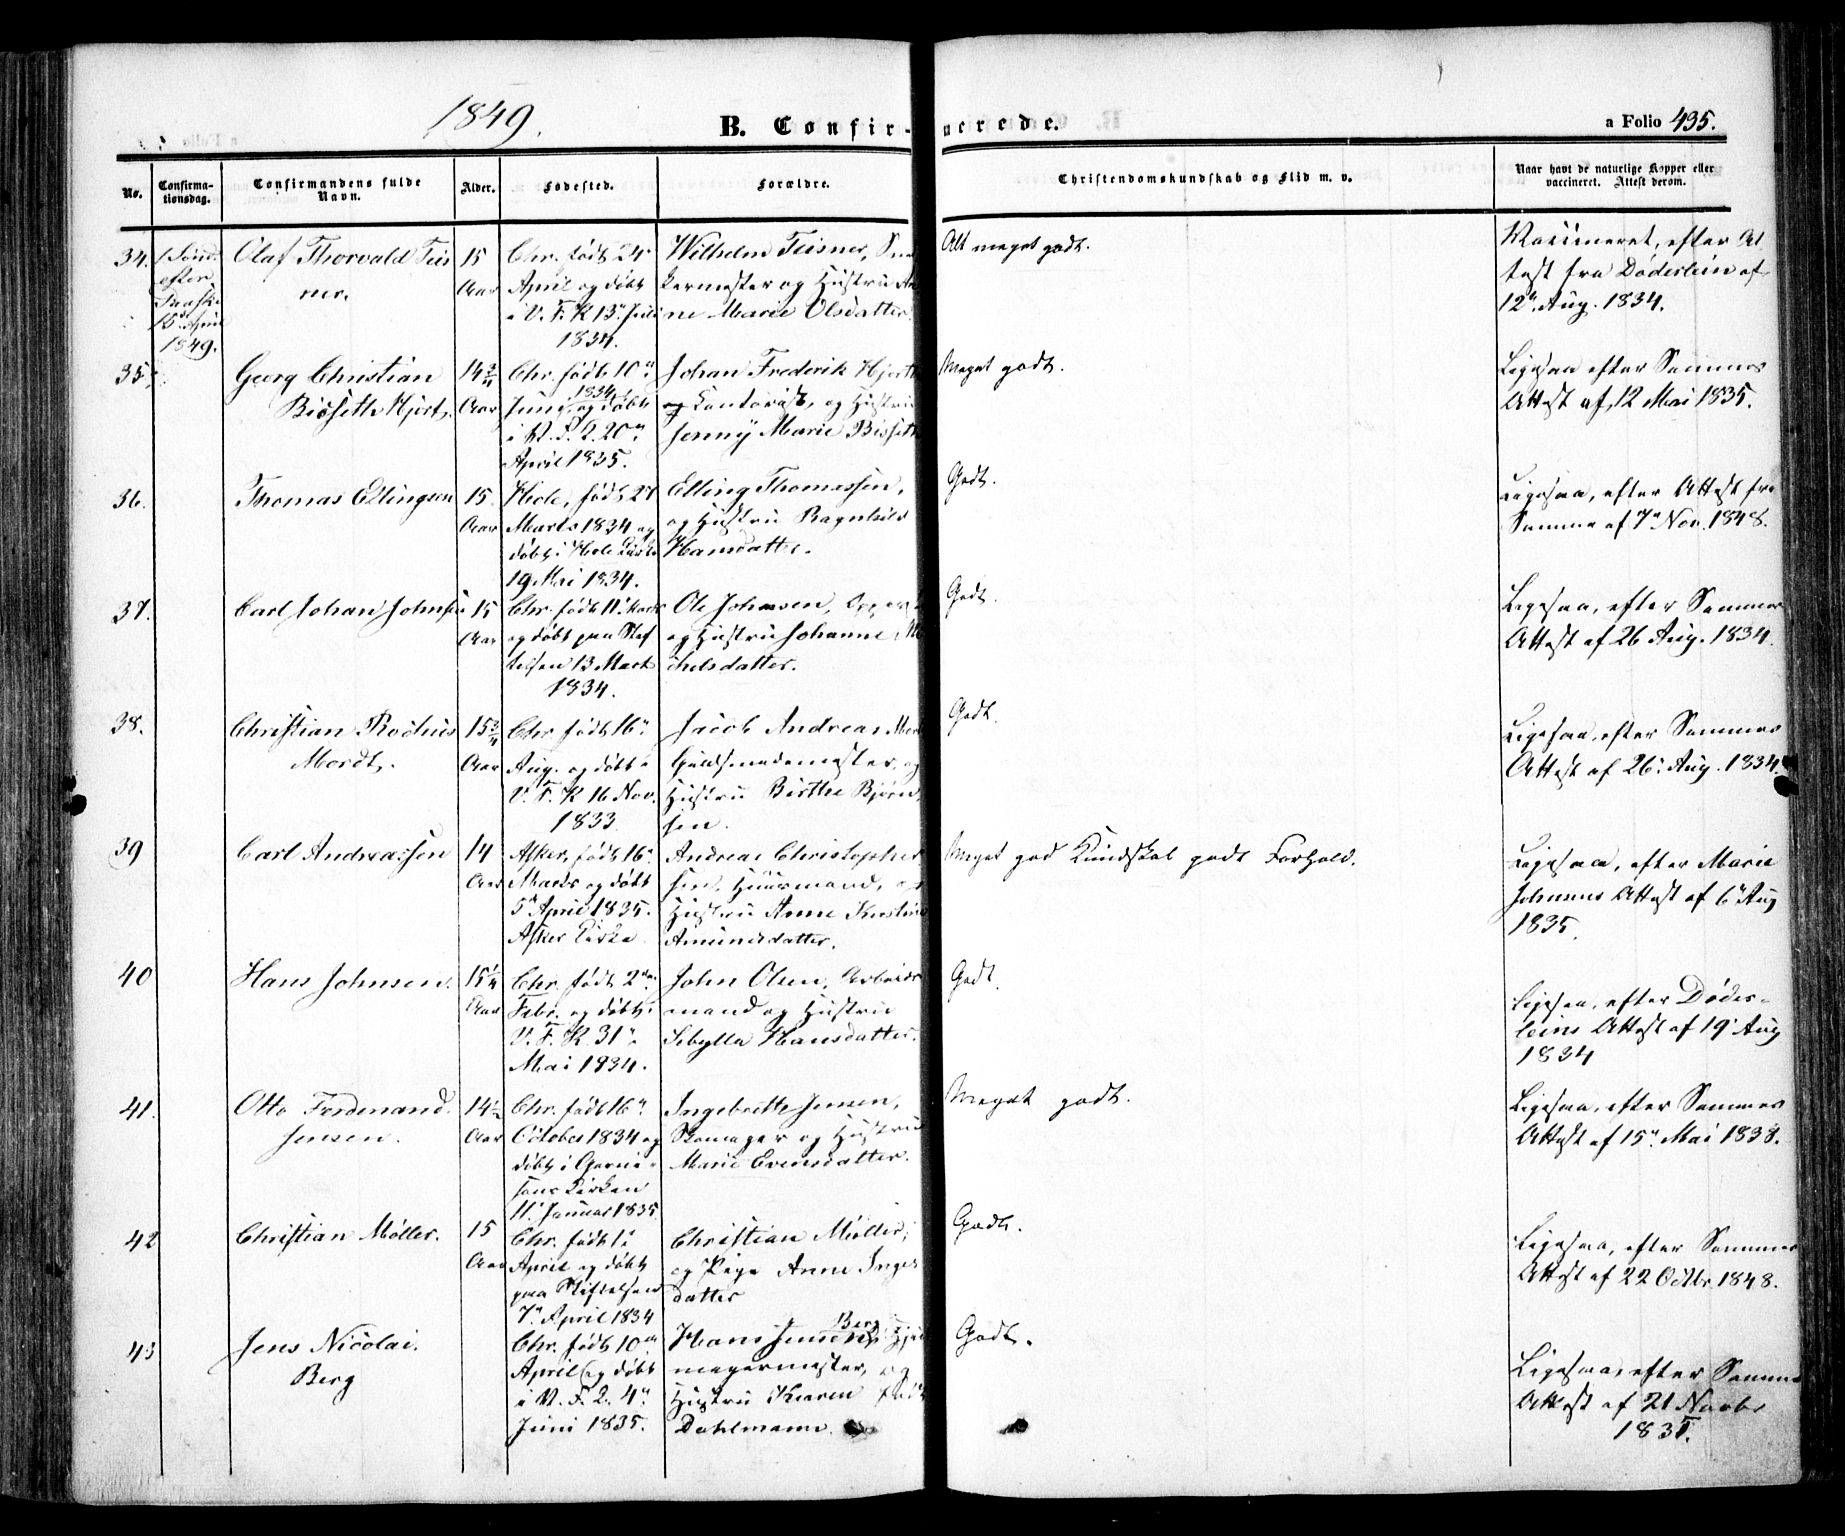 1849.
B. Confir-
merede.
a Folio 435.
No.
Confirma-
tionsdag.
Confirmandens fulde
Navn.
Alder.
Fødested.
Forældre.
Christendomskundskab og Flid m. v.
Naar havt de naturlige Kopper eller
vaccineret. Attest derom.
34.
1 Sönd.
efter
Paaske
15 April
1849.
Olaf Thorvald Teis
ner.
15
Aar
Chr. født 24
April og døbt
i V. F. K 13 Juli
1834.
Wilhelm Teisner, Snee
kermester og Hustru An
ne Marie Olsdatter.
Alt meget godt.
Vaccineret, efter At
test fra Døderlein af
12 Aug. 1834.
35.
Georg Christian
Bisseth Hjort.
14 3/4
Aar
Chr. født 10
1834
Juni, og døbt
i V. F. K. 20
April 1835.
Johan Frederik Hjorth
Contorist, og Hustru
Jenny Marie Bisseth
Meget godt.
Ligesaa efter Sammes
Attest af 12 Mai 1835.
36.
Thomas Ellingsen
15.
Aar
Hole, født 27
Marts 1834 og
døbt i Hole Kirke
19 Mai 1834.
Elling Thomassen,
og Hustru Ragnhild
Hansdatter.
Godt.
Ligesaa, efter Attest fra
Samme af 7 Nov. 1848.
37.
Carl Johan Johnsen
15
Aar
Chr. født 11 Marts
og døbt paa Stif
telsen 13 Marts
1834.
Ole Johnsen,
og Hustru Johanne Mi
chelsdatter.
Godt.
Ligesaa, efter Sammes
Attest af 26 Aug. 1834.
38.
Christian Rochus
Mordt.
15 3/4
Aar
Chr. født 16
Aug. og døbt i
V. F. K 16 Nov.
1833
Jacob Andreas Mor
Guldsmedemester, og
Hustru Birthe Bjørn
sen.
Godt.
Ligesaa, efter Sammes
Attest af 26 Aug. 1834.
39
Carl Andreassen
14
Aar
Asker, født 16
Marts og døbt
5 April 1835.
Asker Kirke
Andreas Christopher
sen, Huusmand, og
Hustru Anne Kirstine
Amundsdatter.
Meget god Kundskab godt Forhold.
Ligesaa, efter Marie
Johnsens Attest af 6 Aug
1835.
40
Hans Johnsen.
15 1/4
Aar
Chr. født 2
Febr. og døbt i
V. F. K. 31
Mai 1834.
John Olsen, Arbeids
mand og Hustru
Sibylla Hansdatter.
Godt.
Ligesaa, efter Døder-
leins Attest af 19 Aug
1834
41.
Otto Ferdinand
Jensen.
14 1/2
Aar
Chr. født 16
October 1834 og
døbt i Garni-
sons Kirken
11 Januar 1835
Ingebrette Jensen,
Skomager og Hustru
Marie Evensdatter.
Meget godt.
Ligesaa, efter Sammes
Attest af 15 Mai 1838.
42
Christian Møller.
15
Aar
Chr. født 1
April og døbt
paa Stiftelsen
7 April 1834
Christian Møller,
og Pige Anne Inger
datter
Godt.
Ligesaa, efter Sammes
Attest af 22 Octbr 1848.
43
Jens Nicolai
Berg
Chr. født 10
April og døbt
i V. F. K. 4
Juni 1835.
Berg
Hans Jensen, Hjul
magermester, og
Hustru Karen født
Dahlmann.
Godt.
Ligesaa, efter Sammes
Attest af 21 Novbr
1835.